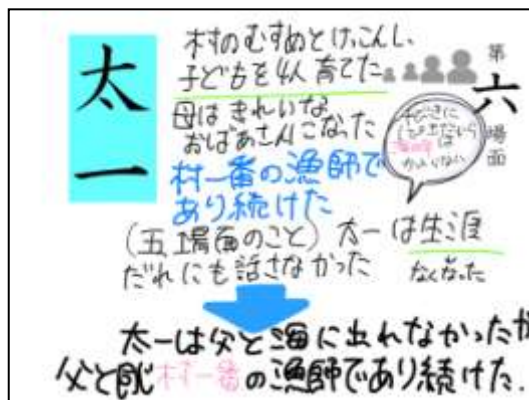 太一
第六場面
村のむすめとけっこんし、
子どもを4人育てた
母はきれいな
おばあさんになった
村一番の漁師で
あり続けた
(五場面のこと)太一は生涯
だれにも話さなかった
なくなった
太一は父と海に出れなかったが
父と同じ村一番の漁師であり続けた.